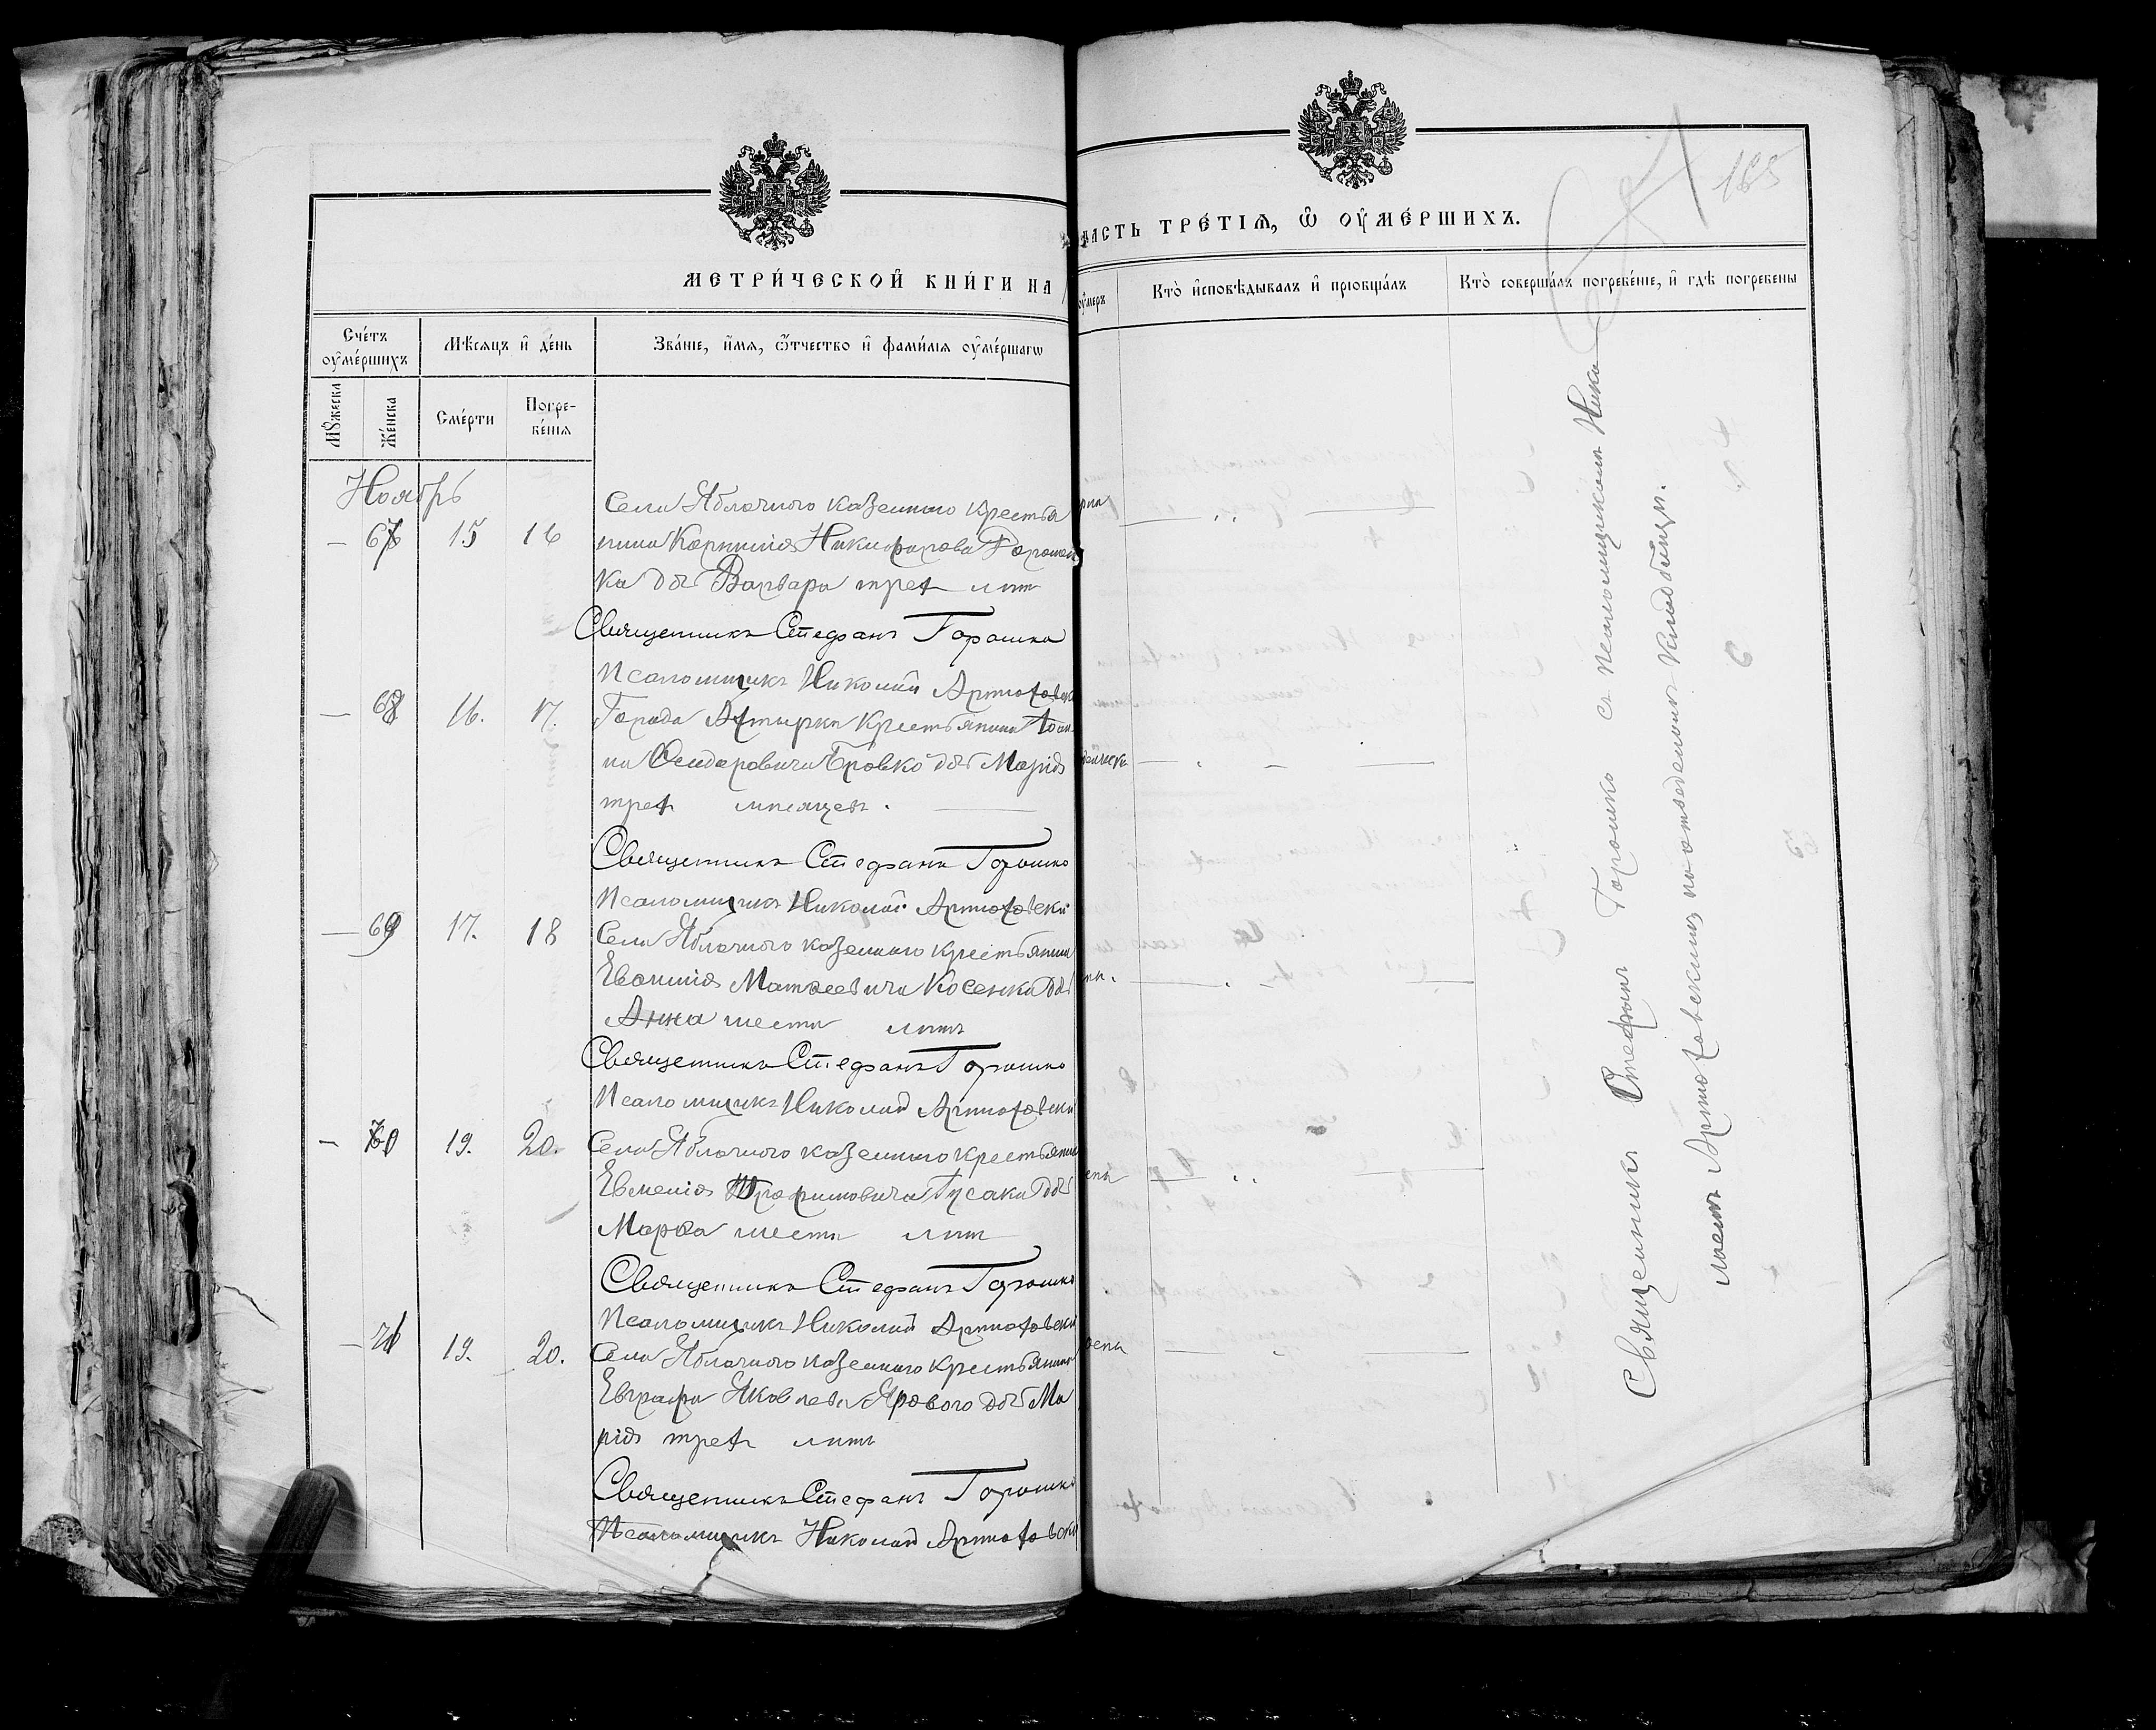 МЕТРИ́ЧЕСКОЙ КНИ́ГИ НА
Сче́тъ оумершихъ
Мѣсяцъ и день
Зва́ніе, и҆́мя, ѻ҆́тчество и҆ фами́лія оу҆ме́ршагѡ
Мꙋжеска
Же́нска
Сме́рти
Погре-
бе́нія
Ноябрь
Села Яблочного казенного крестья
— 67 15 16 нина Корнилія Никифорова
ка доч Варвара трех лѣт
Священникъ Стефанъ Горошко
Псаломщикъ Николай Артюховск
— 68 16. 17. Города Ахтырки крестьянина Іоан
на Феодоровича Бровко доч Марія
трех мѣсяцевъ.
Священникъ Стефанъ Горошко
Псаломщикъ Николай Артюховскій
— 69 17. 18 Села Яблочного казенного крестьянина
Матвеевича Косенка доч
Анна шести лѣтъ
Священникъ Стефанъ Горошко
Псаломщикъ Николай Артюховскій
— 70 19. 20. Села Яблочного казенного крестьянин
Евменія Трофимовича Гусака доч
Марѳа шести лѣт
Священникъ Стефанъ Горошко
Псаломщикъ Николай Артюховскі
— 71 19. 20. Села Яблочного казенного крестьянин
Евграфа Яковлев Ярового доч Ма
рія трех лѣтъ
Священникъ Стефанъ Горошко
Псаломщикъ Николай Артюховскі
185
ЧАСТЬ ТРЕ́ТІѦ, Ѡ҆ ОУ҆МЕ́РШИХЪ.
оу҆меръ
Кто̀ и҆сповѣ́дывалъ и҆ прїобща́лъ
Кто̀ соверша́лъ погребе́ніе, и҆ гдѣ̀ погребены
Священникъ Стефанъ Горошко съ псаломщикомъ Нико-
лаемъ Артюховскимъ на отведенномъ кладбищѣ.